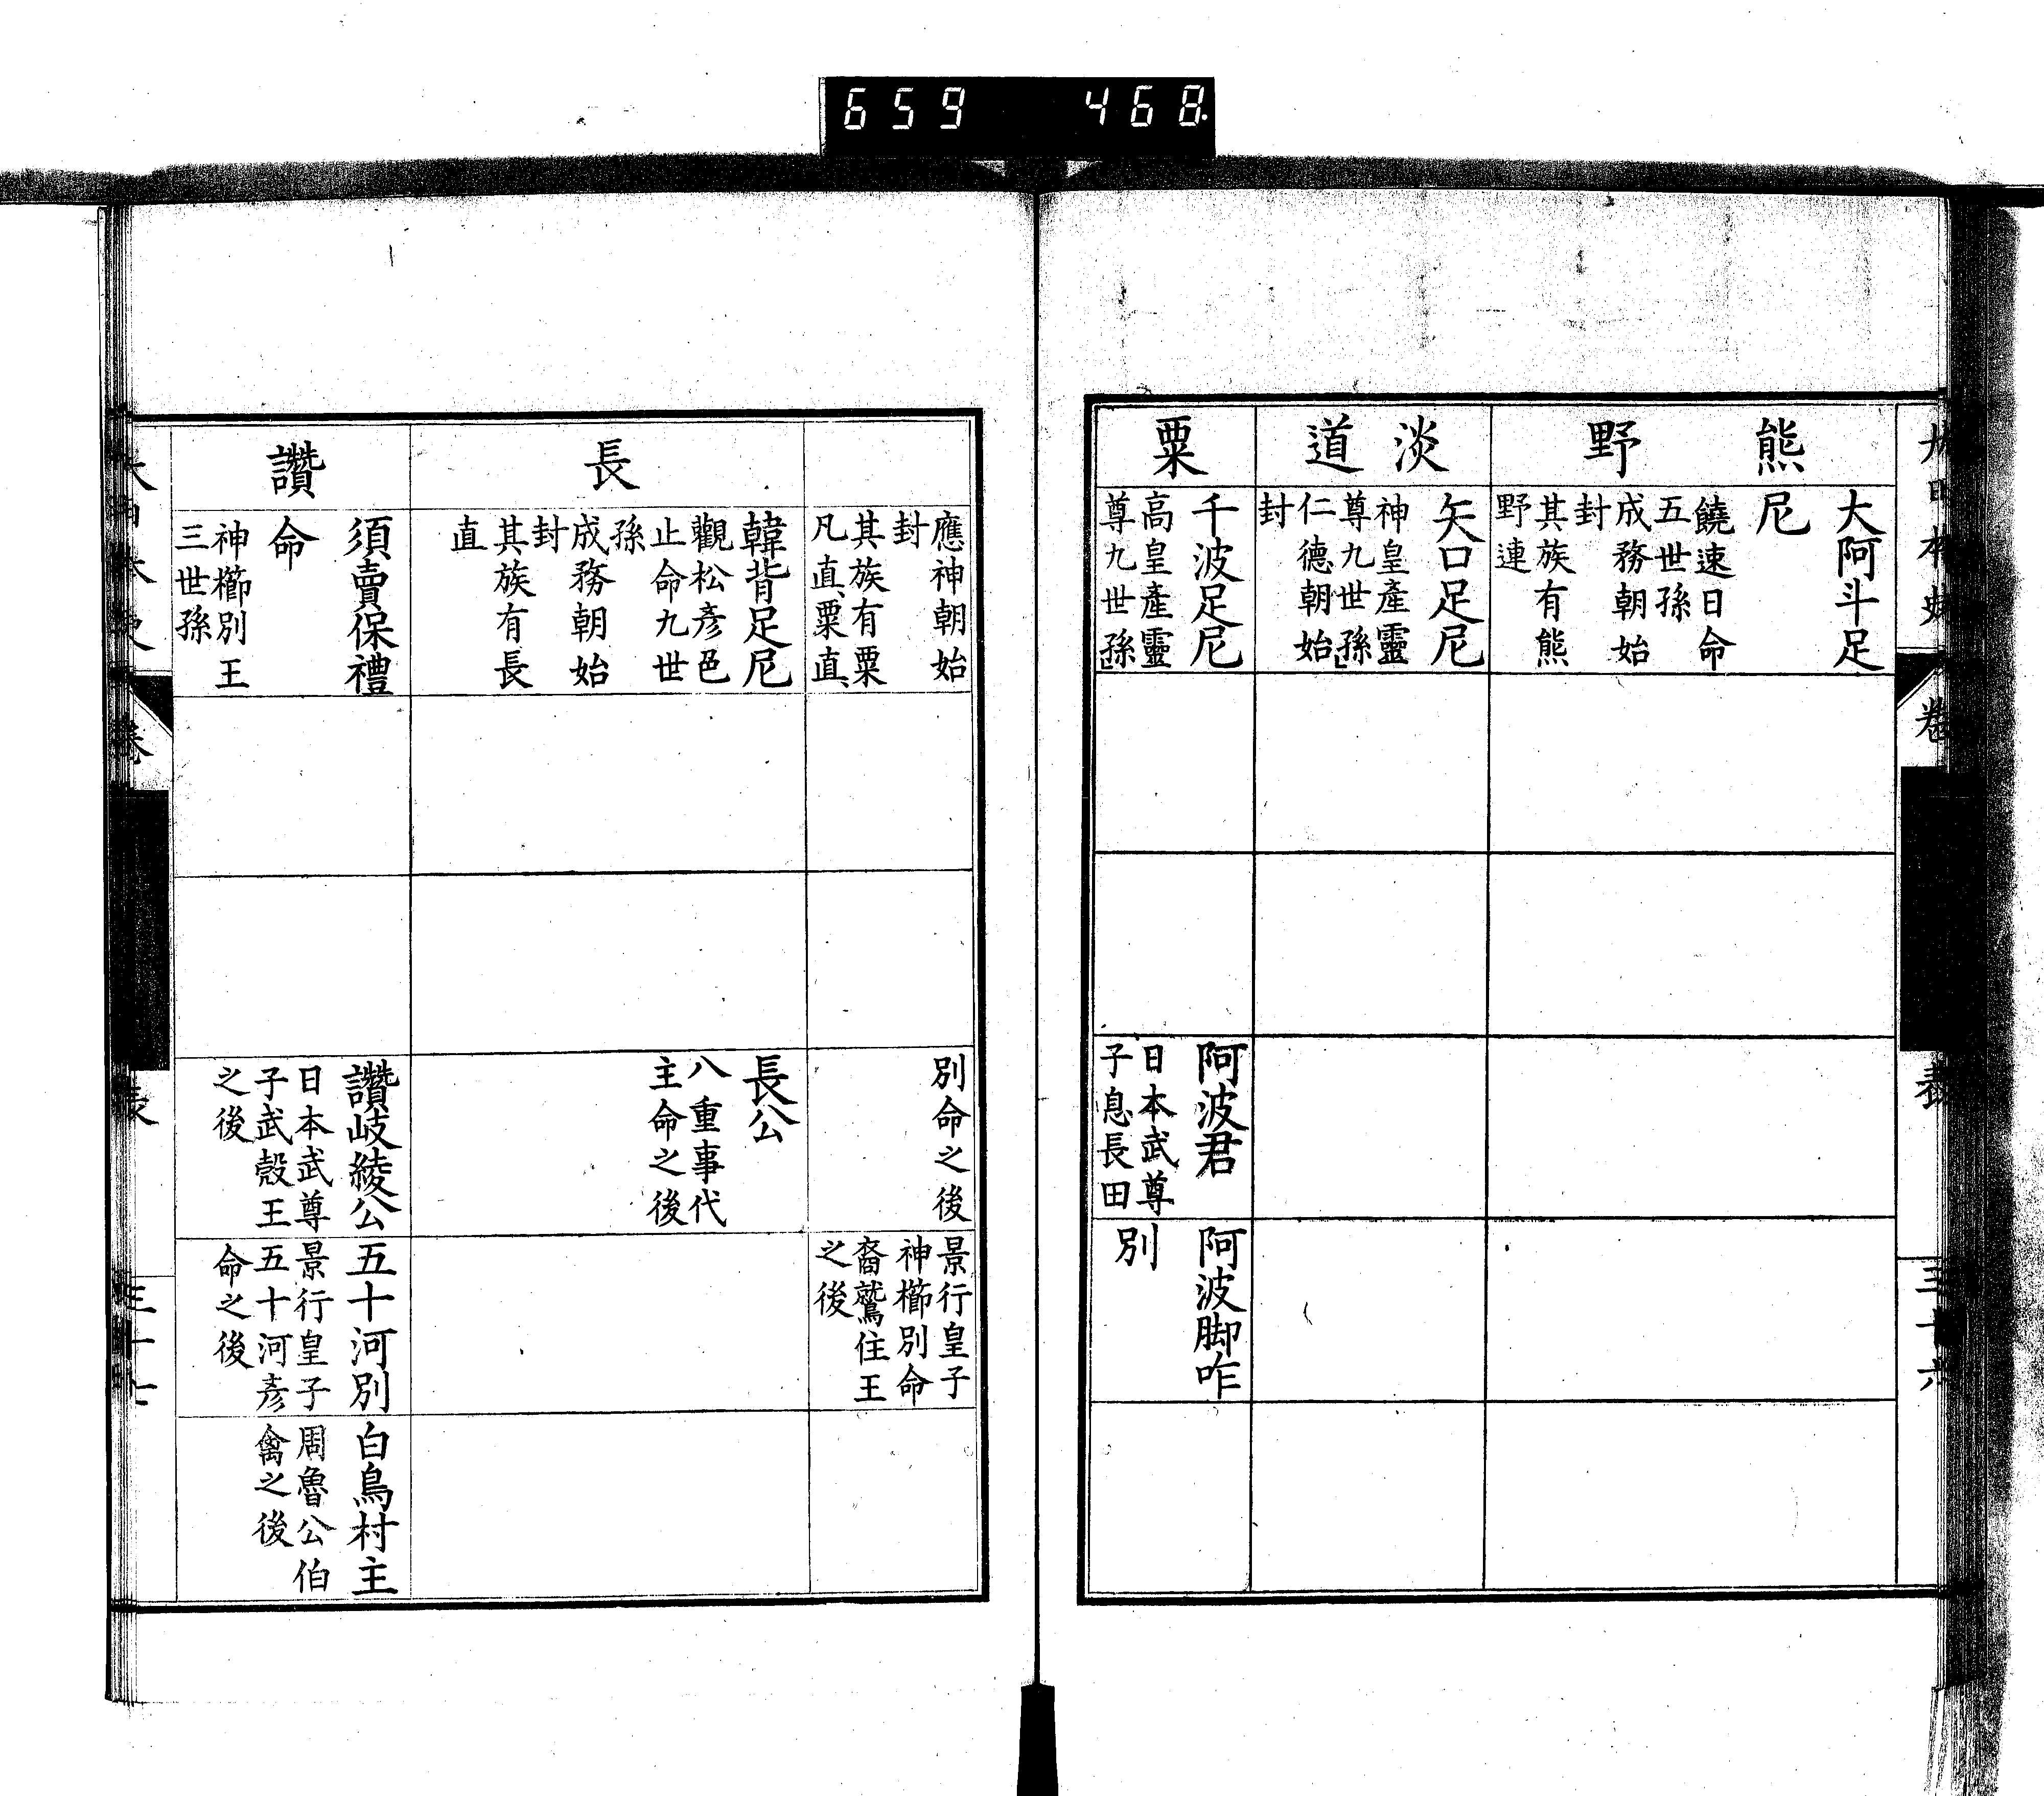 659 468
大日本史
卷
表
三十六
熊野
大阿斗足
尼
饒速日命
五世孫
成務朝始
封
其族有熊
野連
淡道
矢口足尼
神皇產靈
尊九世孫
仁德朝始
封
粟
千波足尼
高皇產靈
尊九世孫
阿波君
日本武尊
子息長田
阿波脚咋
別
應神朝始
封
其族有粟
凡直、粟直、
別命之後
景行皇子
神櫛別命
裔鷲住王
之後
長
韓背足尼
觀松彥色
止命九世
孫
成務朝始
封
其族有長
直
長公
八重事代
主命之後
讚
須賣保禮
命
神櫛別王
三世孫
讚岐綾公
日本武尊
子武殼王
之後
五十河別
景行皇子
五十河彥
命之後
白鳥村主
周魯公伯
禽之後
大日本史
卷
表
三十七